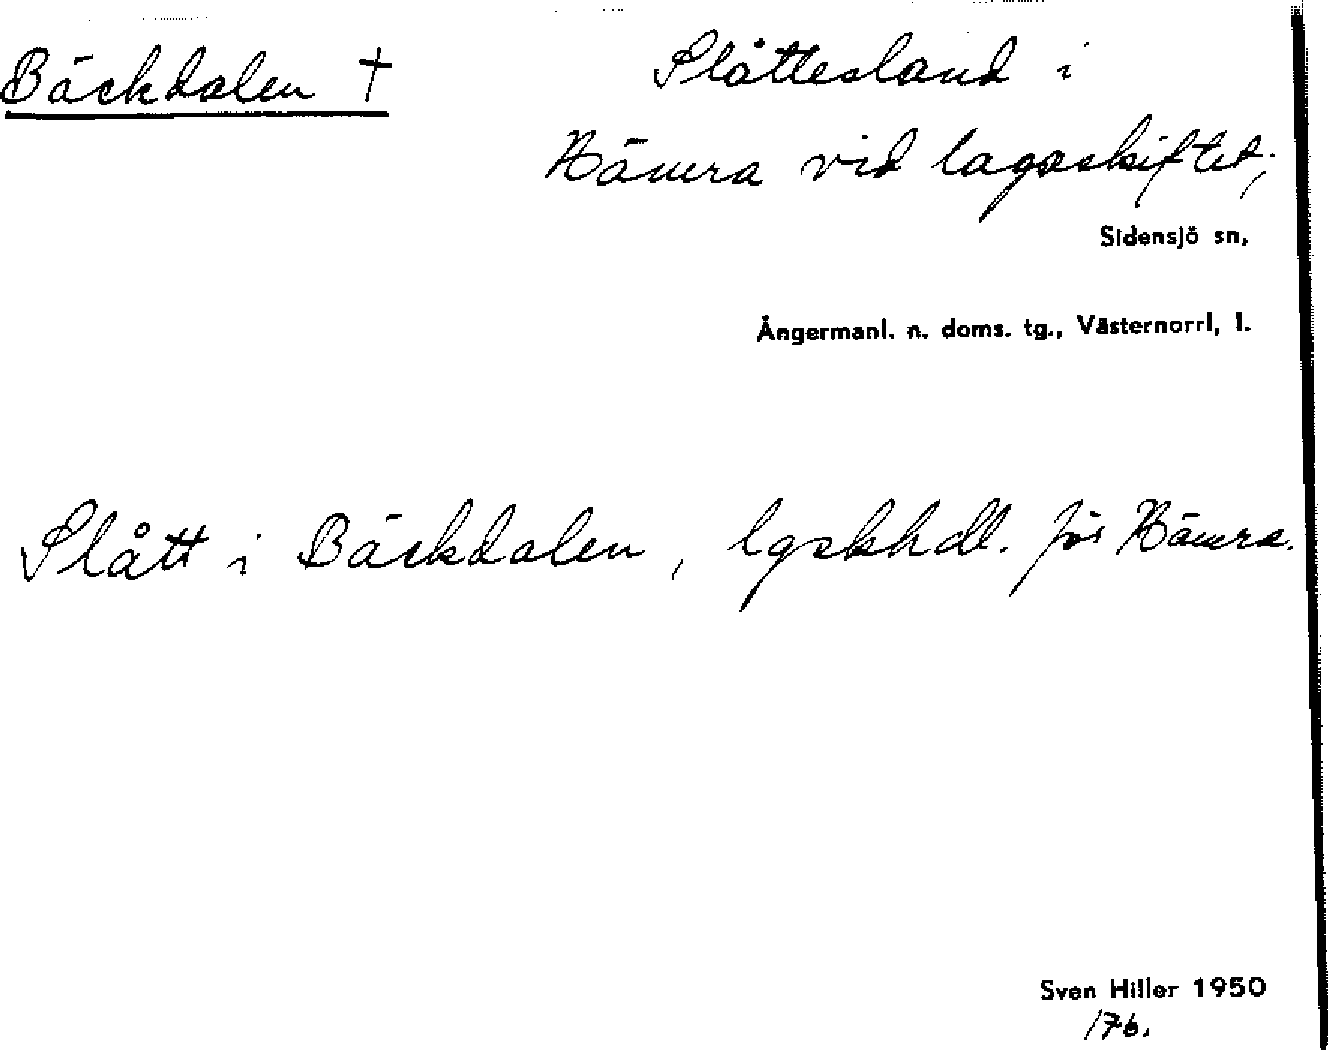 Bäckdalen †
Slåttesland i
Bämra vid lagaskiftet;
Sidensjö sn,
Ångermanl. n. doms. tg., Västernorrl, l.
Slått i Bäckdalen, lgskhdl. för Bämra.
Sven Hiller 1950
176.